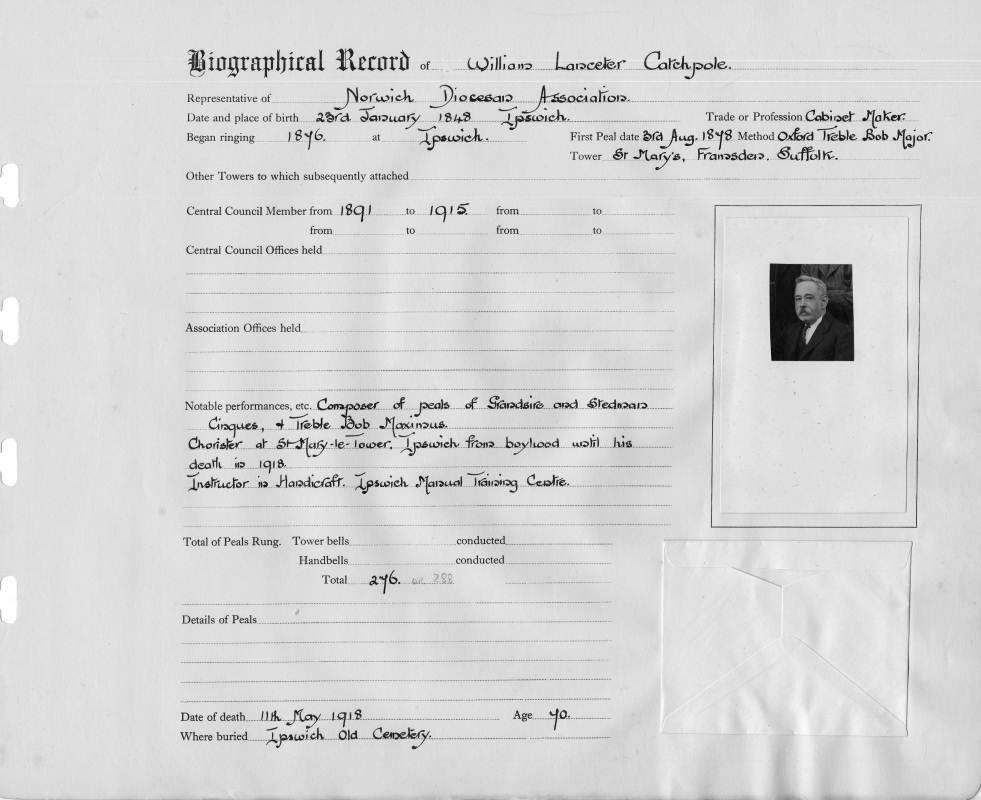 Biographical Record of William Lanceter Catchpole.
Representative of Norwich Diocesan Association.
Date and place of birth 23rd January 1848 Ipswich. Trade or Profession Cabinet Maker.
Began ringing 1876. at Ipswich. First Peal date 3rd Aug. 1878 Method Oxford Treble Bob Major.
Tower St Mary's, Framsden, Suffolk.
Other Towers to which subsequently attached
Central Council Member from 1891 to 1915. from to
from to from to
Central Council Offices held
Association Offices held
Notable performances, etc. Composer of peals of Grandsire and Stedman
Cinques, & Treble Bob Maximus.
Chorister at St Mary-le-Tower, Ipswich from boyhood until his
death in 1918.
Instructor in Handicraft. Ipswich Manual Training Centre.
Total of Peals Rung. Tower bells conducted
Handbells conducted
Total 276. or 288
Details of Peals
Date of death 11th May 1918 Age 70.
Where buried Ipswich Old Cemetery.